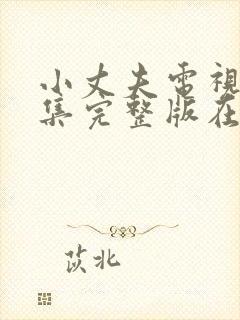 小丈夫電視
集完整版在
苡北